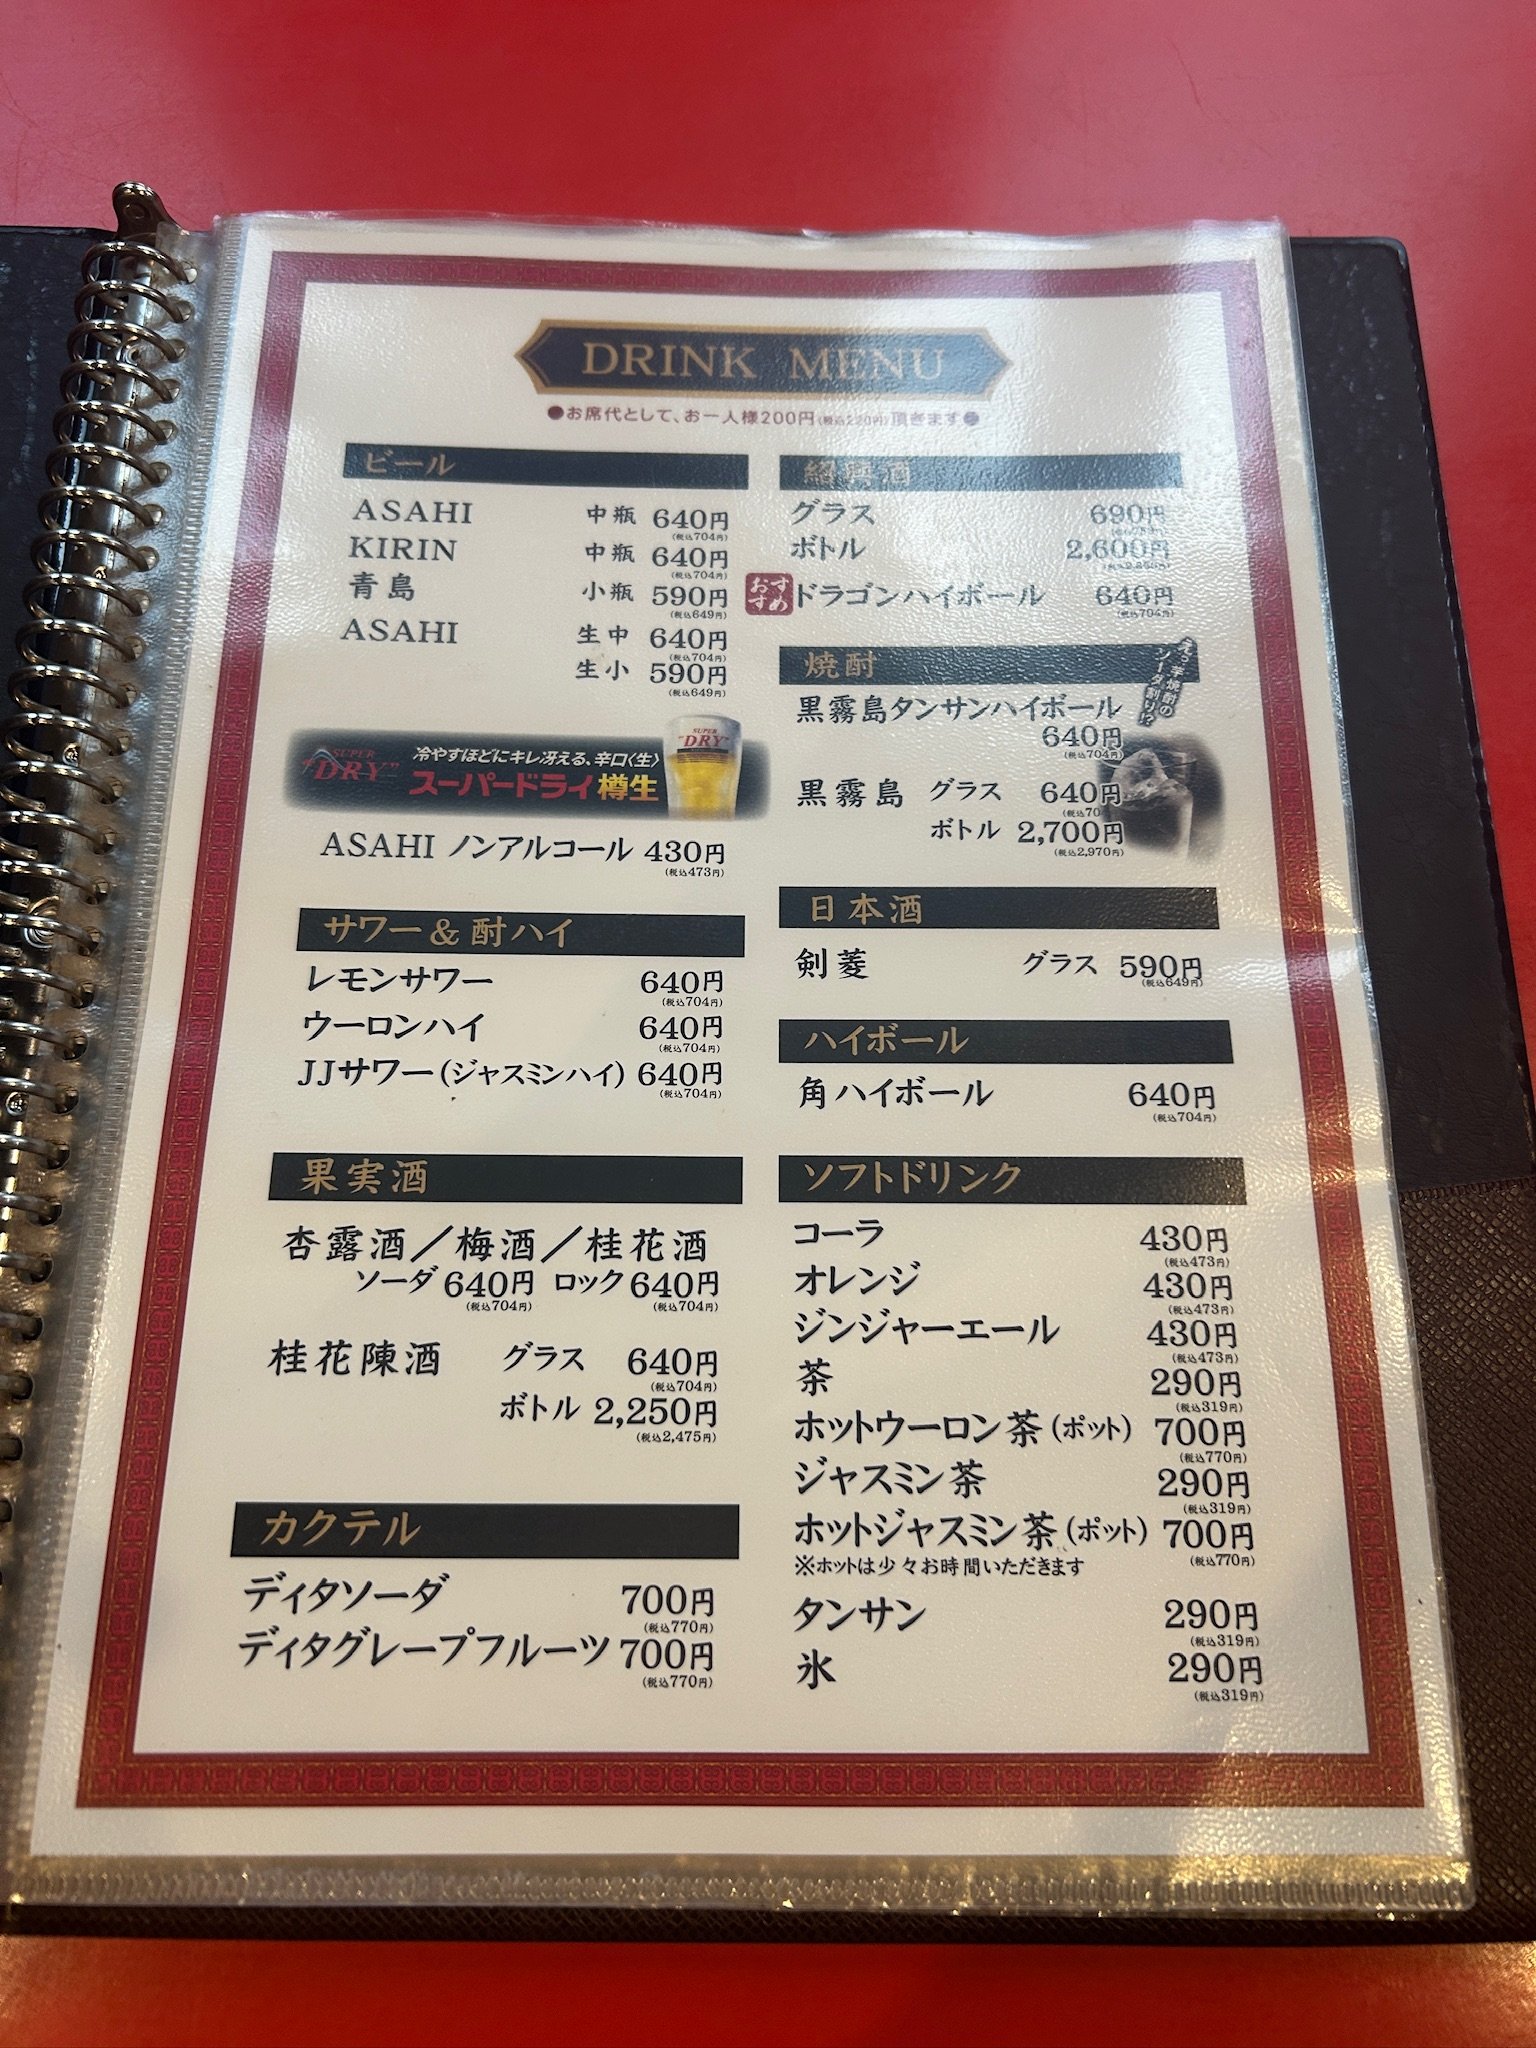 DRINK MENU
●お席代として、お一人様200円(税込220円)頂きます●
ビール
ASAHI 中瓶 640円
(税込704円)
KIRIN 中瓶 640円
(税込704円)
青島 小瓶 590円
(税込649円)
ASAHI 生中 640円
(税込704円)
生小 590円
(税込649円)
SUPER
"DRY"
冷やすほどにキレ冴える、辛口〈生〉
スーパードライ樽生
SUPER
"DRY"
ASAHI ノンアルコール 430円
(税込473円)
サワー&酎ハイ
レモンサワー 640円
(税込704円)
ウーロンハイ 640円
(税込704円)
JJサワー(ジャスミンハイ) 640円
(税込704円)
果実酒
杏露酒/梅酒/桂花酒
ソーダ 640円 ロック 640円
(税込704円) (税込704円)
桂花陳酒 グラス 640円
(税込704円)
ボトル 2,250円
(税込2,475円)
カクテル
ディタソーダ 700円
(税込770円)
ディタグレープフルーツ 700円
(税込770円)
紹興酒
グラス 690円
ボトル 2,600円
おすすめ ドラゴンハイボール 640円
(税込704円)
焼酎
えっ、芋焼酎の
ソーダ割り!?
黒霧島タンサンハイボール
640円
(税込704円)
黒霧島 グラス 640円
(税込70
ボトル 2,700円
(税込2,970円)
日本酒
剣菱 グラス 590円
(税込649円)
ハイボール
角ハイボール 640円
(税込704円)
ソフトドリンク
コーラ 430円
(税込473円)
オレンジ 430円
(税込473円)
ジンジャーエール 430円
(税込473円)
茶 290円
(税込319円)
ホットウーロン茶(ポット) 700円
(税込770円)
ジャスミン茶 290円
(税込319円)
ホットジャスミン茶(ポット) 700円
(税込770円)
※ホットは少々お時間いただきます
タンサン 290円
(税込319円)
氷 290円
(税込319円)